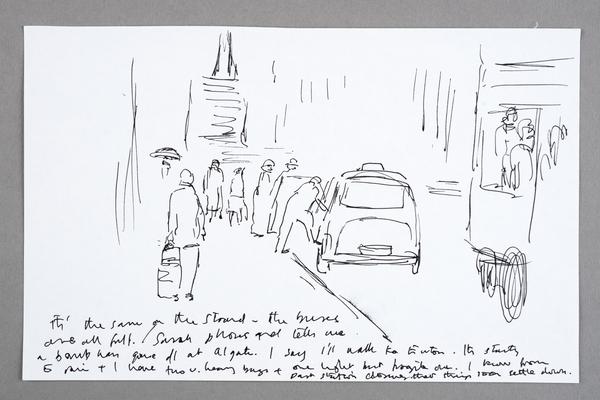 It's the same on the Strand - the buses
are all full. Sarah phones and tells me
a bomb has gone off at Algate. I say I'll walk to Euston. Its starting
to rain + I have two v. heavy bags + one light but fragile one. I know from
past station closures that things soon settle down.